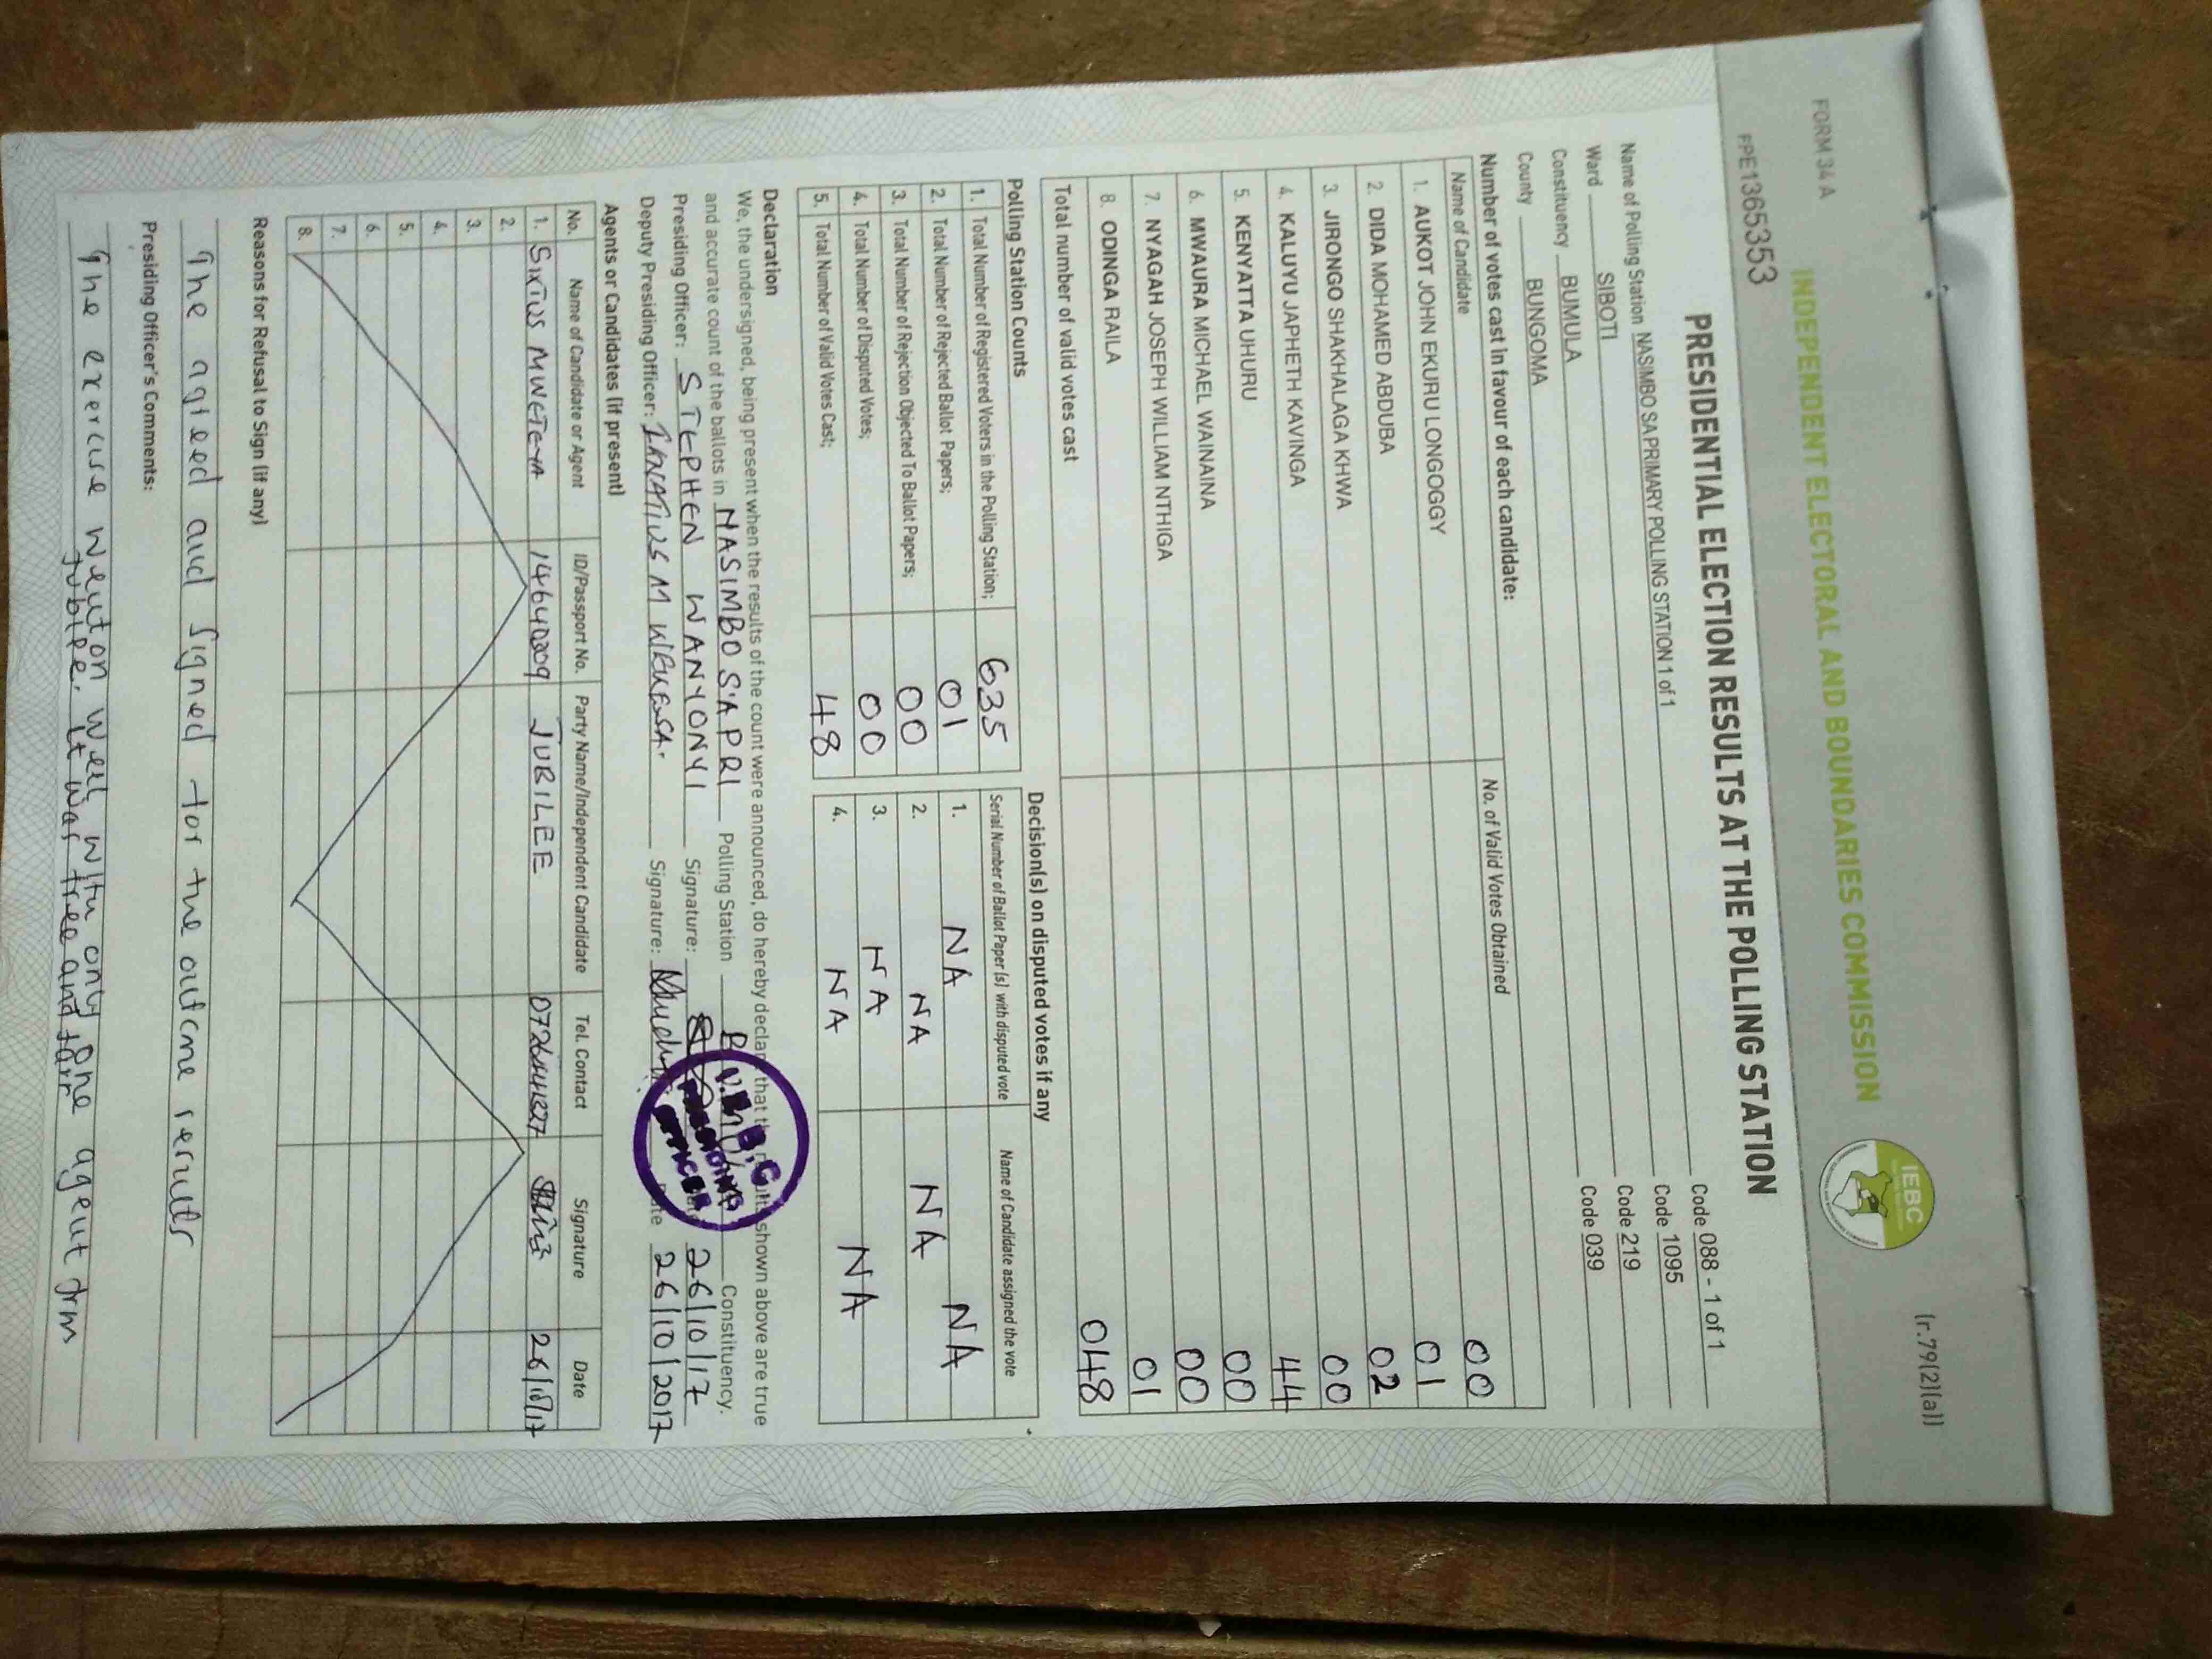 FORM 34 A
(r.79(2)(a))
INDEPENDENT ELECTORAL AND BOUNDARIES COMMISSION
IEBC
FPE1365353
PRESIDENTIAL ELECTION RESULTS AT THE POLLING STATION
Name of Polling Station NASIMBO SA PRIMARY POLLING STATION 1 of 1 Code 088 - 1 of 1
Ward SIBOTI Code 1095
Constituency BUMULA Code 219
County BUNGOMA Code 039
Number of votes cast in favour of each candidate:
Name of Candidate No. of Valid Votes Obtained
1. AUKOT JOHN EKURU LONGOGGY 00
2. DIDA MOHAMED ABDUBA 01
3. JIRONGO SHAKHALAGA KHWA 02
4. KALUYU JAPHETH KAVINGA 00
5. KENYATTA UHURU 44
6. MWAURA MICHAEL WAINAINA 00
7. NYAGAH JOSEPH WILLIAM NTHIGA 00
8. ODINGA RAILA 01
Total number of valid votes cast 048
Polling Station Counts
1. Total Number of Registered Voters in the Polling Station; 635
2. Total Number of Rejected Ballot Papers; 01
3. Total Number of Rejection Objected To Ballot Papers; 00
4. Total Number of Disputed Votes; 00
5. Total Number of Valid Votes Cast; 48
Decision(s) on disputed votes if any
Serial Number of Ballot Paper (s) with disputed vote Name of Candidate assigned the vote
1. NA NA
2. NA NA
3. NA
4. NA NA
Declaration
We, the undersigned, being present when the results of the count were announced, do hereby declare that the results shown above are true
and accurate count of the ballots in NASIMBO S'A PRI Polling Station Constituency.
Presiding Officer: STEPHEN WANYONYI Signature: Date 26/10/17
Deputy Presiding Officer: IANATIUS M Signature: Date 26/10/2017
I.E.B.C
PRESIDING
OFFICER
Agents or Candidates (if present)
No. Name of Candidate or Agent ID/Passport No. Party Name/Independent Candidate Tel. Contact Signature Date
1. SIXTUS JUBILEE 26/10/17
2.
3.
4.
5.
6.
7.
8.
Reasons for Refusal to Sign (if any)
The agreed and signed for the outcome results
Presiding Officer's Comments:
The exercise went on well with only one agent from
Jubilee. it was free and fair